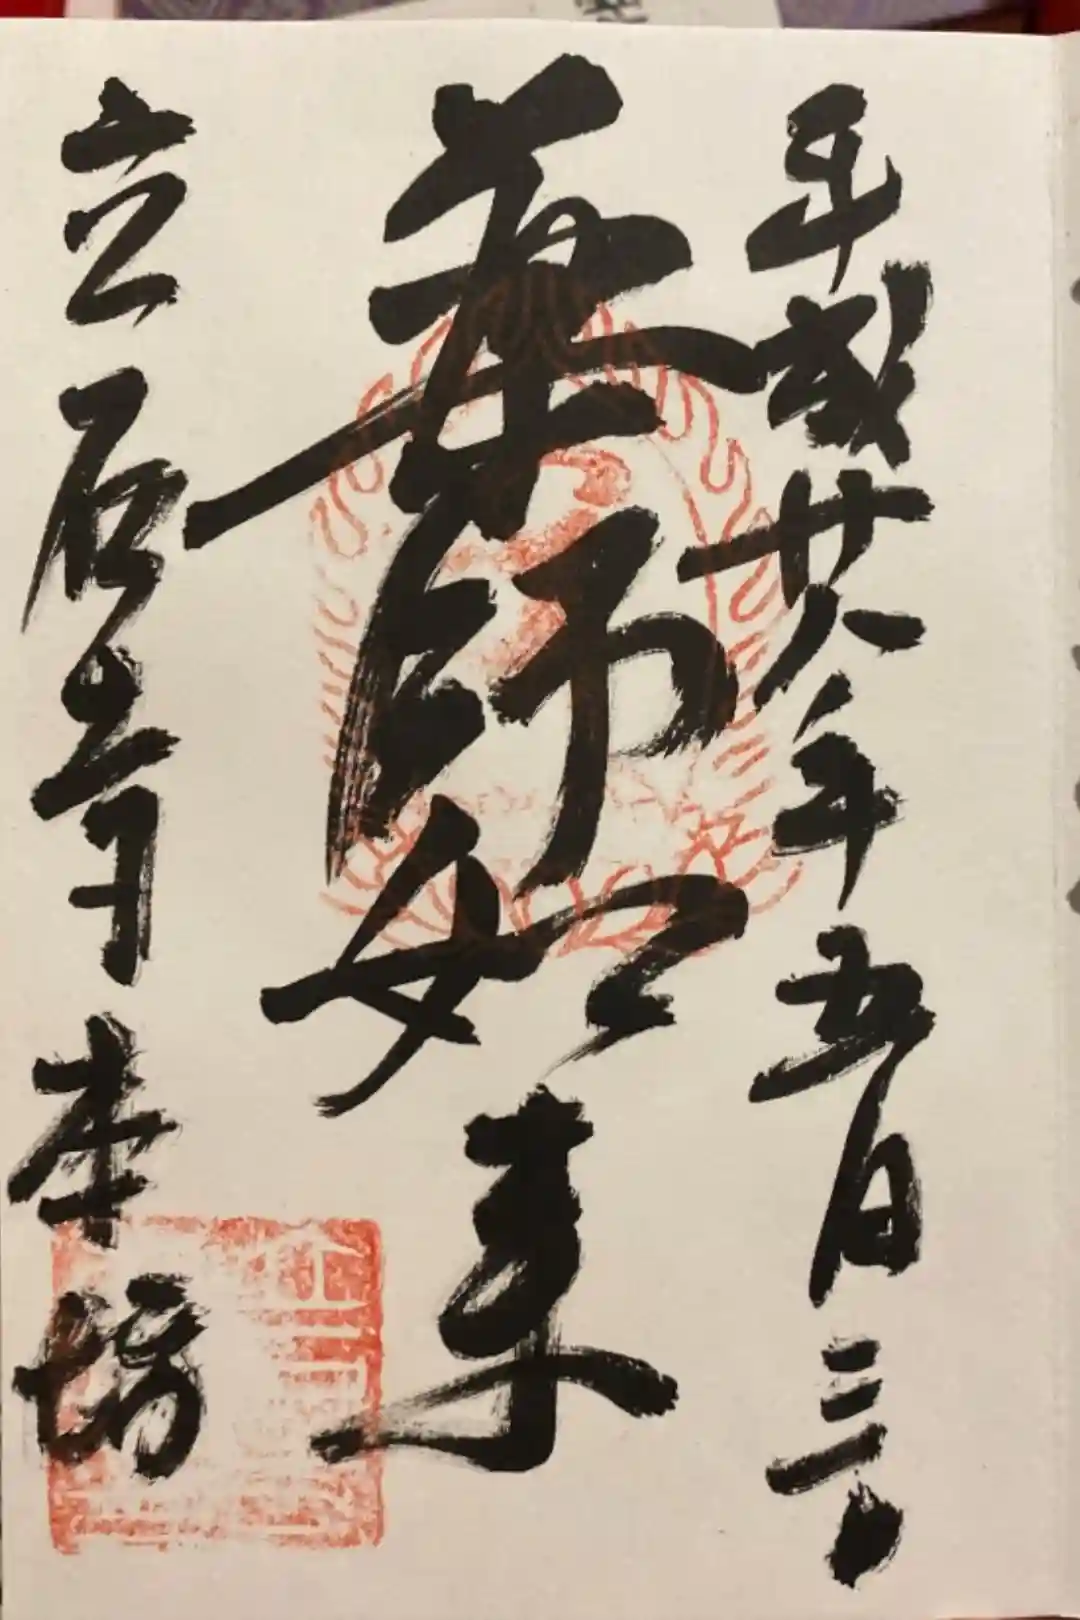 平成廿八年五月三日
薬師如来
立石寺本坊